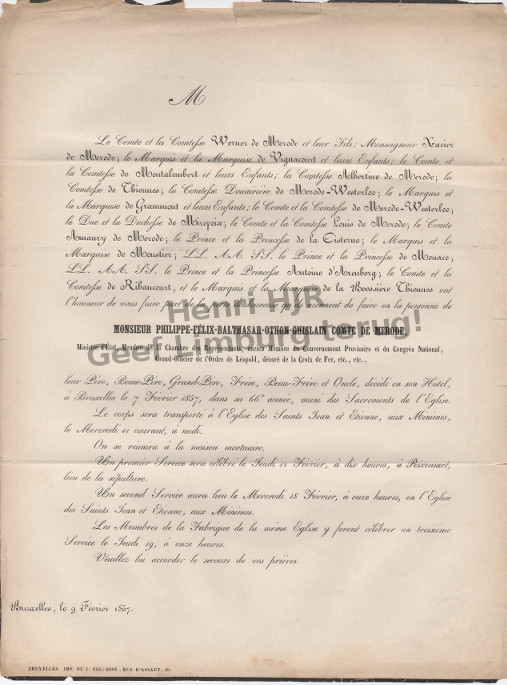 M
Le Comte et la Comtesse Werner de Merode et leur Fils; Monseigneur Xavier
de Merode; le Marquis et la Marquise de Vignacourt et leurs Enfants; le Comte et
la Comtesse de Montalembert et leurs Enfants; la Comtesse Albertine de Merode; la
Comtesse de Thiennes; la Comtesse Douairière de Merode-Westerloo; le Marquis et
la Marquise de Grammont et leurs Enfants; le Comte et la Comtesse de Merode-Westerloo;
le Duc et la Duchesse de Mirepoix; le Comte et la Comtesse Louis de Merode; le Comte
Amaury de Merode; le Prince et la Princesse de la Cisterne; le Marquis et la
Marquise de Moustier; LL. AA. SS. le Prince et la Princesse de Monaco;
LL. AA. SS. le Prince et la Princesse Antoine d'Aremberg; le Comte et la
Comtesse de Ribaucourt, et le Marquis et la Marquise de la Boessière Thiennes ont
l'honneur de vous faire part de la perte douloureuse qu'ils viennent de faire en la personne de
MONSIEUR PHILIPPE-FÉLIX-BALTHASAR-OTHON-GHISLAIN COMTE DE MERODE,
Ministre d'État, Membre de la Chambre des Représentants, ancien Membre du Gouvernement Provisoire et du Congrès National,
Grand-Officier de l'Ordre de Léopold, décoré de la Croix de Fer, etc., etc.,
leur Père, Beau-Père, Grand-Père, Frère, Beau-Frère et Oncle, décédé en son Hôtel,
à Bruxelles le 7 Février 1857, dans sa 66e année, muni des Sacrements de l'Église.
Le corps sera transporté à l'Église des Saints Jean et Etienne, aux Minimes,
le Mercredi 11 courant, à midi.
On se réunira à la maison mortuaire.
Un premier Service sera célébré le Jeudi 12 Février, à dix heures, à Rixensart,
lieu de la sépulture.
Un second Service aura lieu le Mercredi 18 Février, à onze heures, en l'Église
des Saints Jean et Etienne, aux Minimes.
Les Membres de la Fabrique de la même Église y feront célébrer un troisième
Service le Jeudi 19, à onze heures.
Veuillez lui accorder le secours de vos prières.
Bruxelles, le 9 Février 1857.
BRUXELLES IMP. ET L. DELFOSSE, RUE D'ASSAUT,
Henri HJR
Geef Limburg terug!